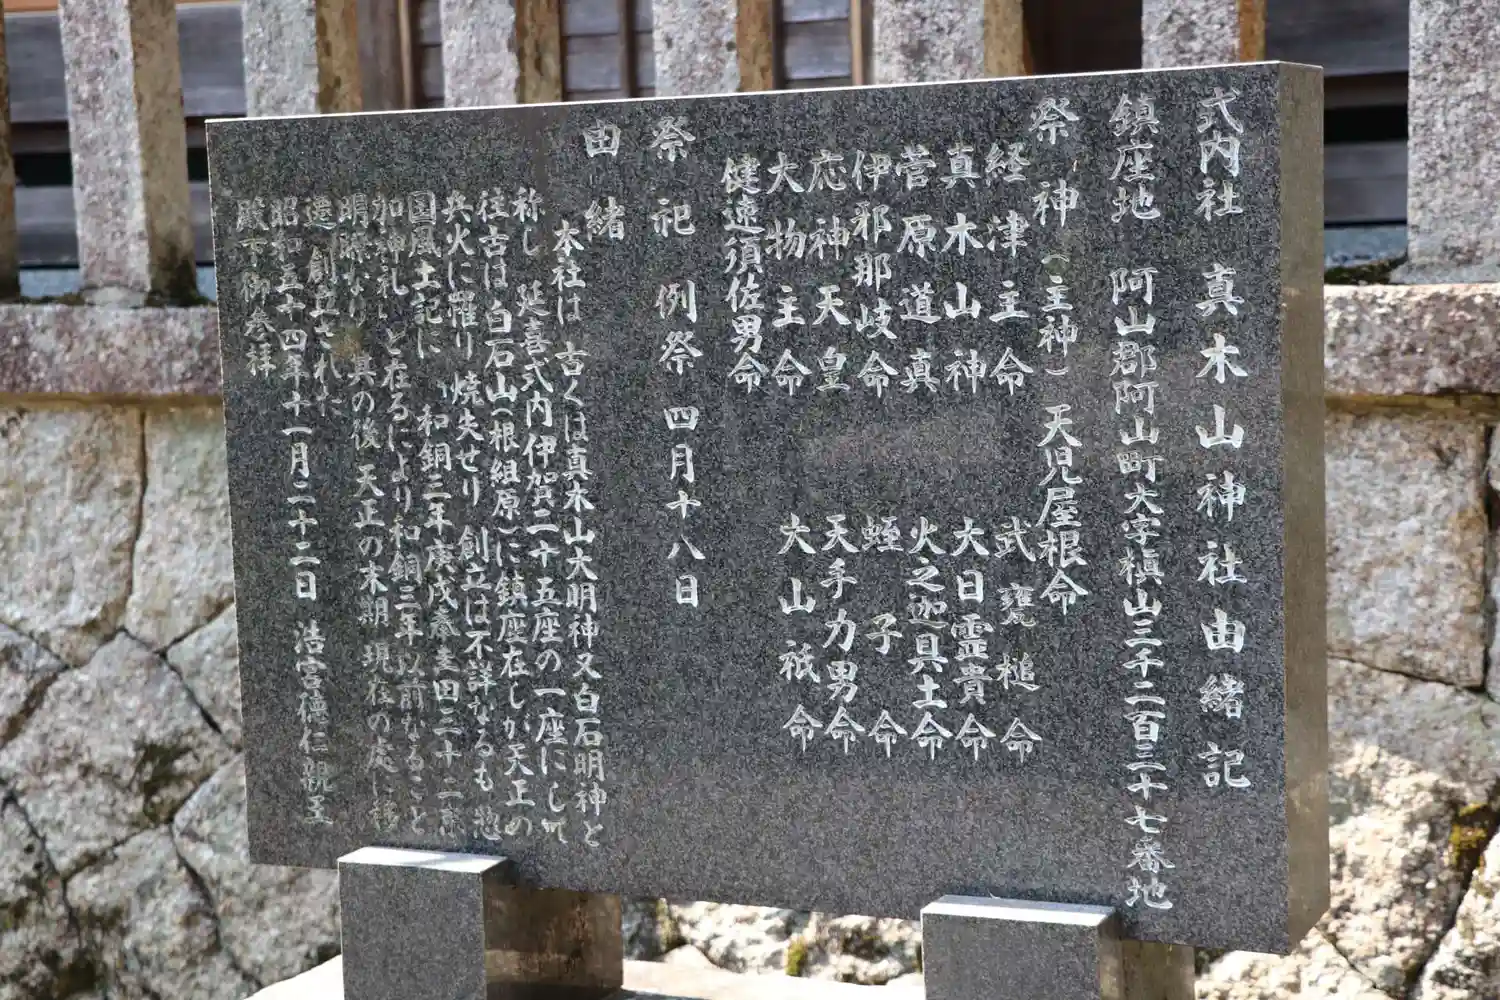 式内社 真木山神社由緒記
鎮座地 阿山郡阿山町大字槙山三千二百三十七番地
祭神(主神) 天児屋根命
経津主命 武甕槌命
真木山神 大日霊貴命
菅原道真 火之迦具土命
伊邪那岐命 蛭子命
応神天皇 天手力男命
大物主命 大山祇命
健速須佐男命
祭祀 例祭 四月十八日
由緒
本社は 古くは真木山大明神又白石明神と
称し 延喜式内伊賀二十五座の一座にして
往古は 白石山(根組原)に鎮座在しが天正の
兵火に罹り 焼失せり 創立は不詳なるも 惣
国風土記に 和銅三年庚戌奉圭田三十二束
加神礼 と在るにより和銅三年以前なること
明瞭なり 其の後天正の末期 現在の処に
遷 創立された
昭和五十四年十一月二十二日 浩宮徳仁親王
殿下御参拝